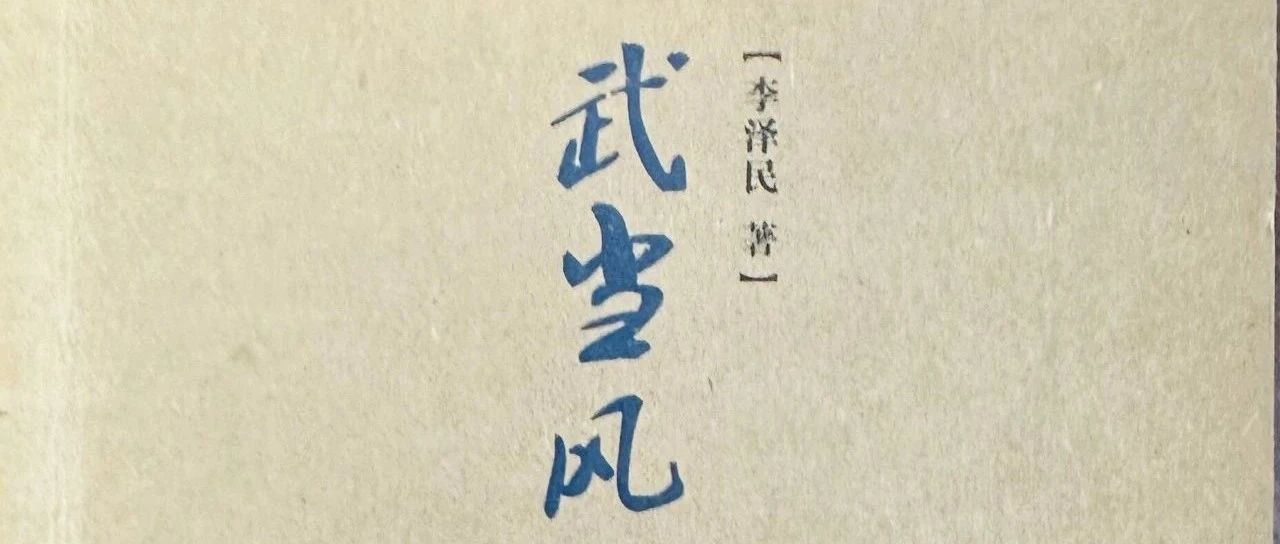 【李泽民 著】
武当风